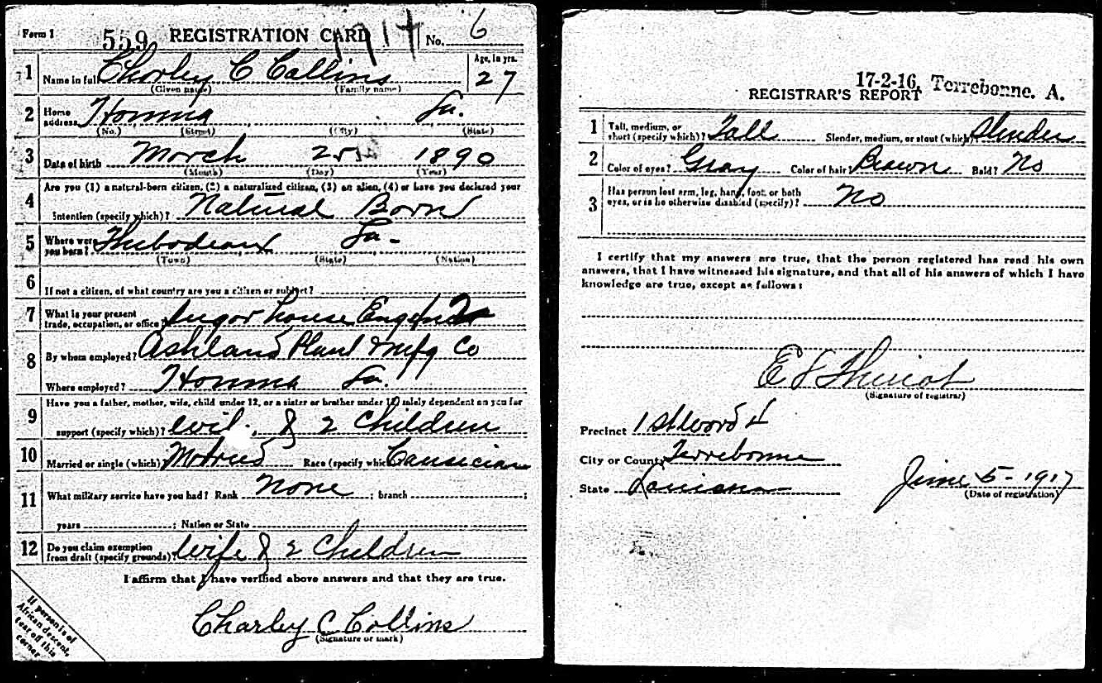 Form 1 559 REGISTRATION CARD No. 6
1 Name in full Charley C Collins Age, in yrs. 27
(Given name) (Family name)
2 Home address Houma La.
(No.) (Street) (City) (State)
3 Date of birth March 25 1890
(Month) (Day) (Year)
4 Are you (1) a natural-born citizen, (2) a naturalized citizen, (3) an alien, (4) or have you declared your
intention (specify which)? Natural Born
5 Where were you born? Thibodeaux La.
(Town) (State) (Nation)
6 If not a citizen, of what country are you a citizen or subject?
7 What is your present trade, occupation, or office? Sugar house
8 By whom employed? Ashland Plant & Mfg Co
Where employed? Houma La.
9 Have you a father, mother, wife, child under 12, or a sister or brother under 12, solely dependent on you for
support (specify which)? wife & 2 Children
10 Married or single (which)? Married Race (specify which)? Causician
11 What military service have you had? Rank None ; branch ;
years ; Nation or State
12 Do you claim exemption from draft (specify grounds)? Wife & 2 Children
I affirm that I have verified above answers and that they are true.
Charley C Collins
(Signature or mark)
If person is of
African descent,
tear off this
corner
17-2-16. Terrebonne. A.
REGISTRAR'S REPORT
1 Tall, medium, or short (specify which)? Tall Slender, medium, or stout (which)? Slender
2 Color of eyes? Gray Color of hair? Brown Bald? No
3 Has person lost arm, leg, hand, foot, or both eyes, or is he otherwise disabled (specify)? No
I certify that my answers are true, that the person registered has read his own
answers, that I have witnessed his signature, and that all of his answers of which I have
knowledge are true, except as follows:
(Signature of registrar)
Precinct 1st ward
City or County Terrebonne
State Louisiana June 5 - 1917
(Date of registration)